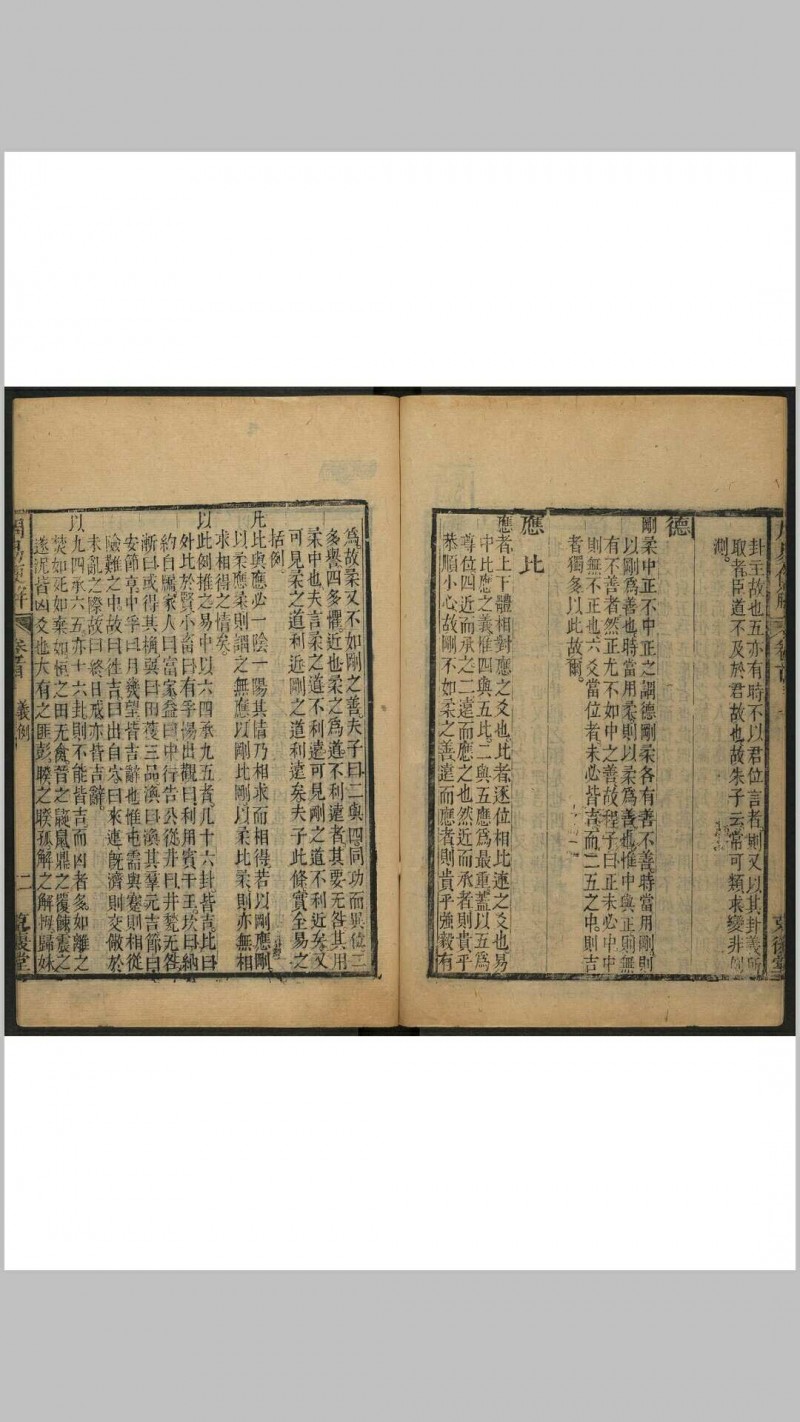 卦主故也五亦有時不以君位言者則又以其卦義所
取者臣道不及於君故也故朱子云常可類求變非例
測
德
剛柔中正不中正之謂德剛柔各有善不善時當用剛則
以剛為善也時當用柔則以柔為善也惟中與正則無
有不善者然正尤不如中之善故程子曰正未必中中
則無不正也六爻當位者未必皆吉而二五之中則吉
者獨多以此故爾
應比
應者上下體相對應之爻也比者逐位相比連之爻也易
中比應之義惟四與五比二與五應為最重蓋以五為
尊位四近而承之二遠而應之也然近而承者則貴乎
恭順小心故剛不如柔之善遠而應者則貴乎強毅有
為故柔又不如剛之善夫子曰二與四同功而異位二
多譽四多懼近也柔之為道不利遠者其要无咎其用
柔中也夫言柔之道不利遠可見剛之道不利近矣又
可見柔之道利近剛之道利遠矣夫子此條實全易之
括例
凡比與應必一陰一陽其情乃相求而相得若以剛應剛
以柔應柔則謂之無應以剛比剛以柔比柔則亦無相
求相得之情矣
以此例推之易中以六四承九五者凡十六卦皆吉比曰
外比於賢小畜曰有孚惕出觀曰利用賓于王坎曰納
約自牖家人曰富家益曰中行告公從井曰井甃无咎
漸曰或得其桷巽曰田獲三品渙曰渙其羣元吉節曰
安節亨中孚曰月幾望皆吉辭也惟屯需與蹇則相從
險難之中故曰往吉曰出自穴曰來連既濟則交儆於
未亂之際故曰終日戒亦皆吉辭
以九四承六五亦十六卦則不能皆吉而凶者多如離之
焚如死如棄如恒之田无禽晉之鼫鼠鼎之覆餗震之
遂泥皆凶爻也大有之匪彭睽之睽孤解之解拇歸妹
卷首
義例
二